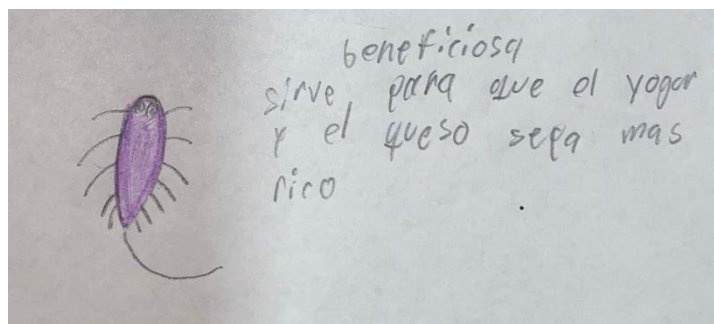 beneficiosa
sirve para que el yogur
y el queso sepa mas
rico